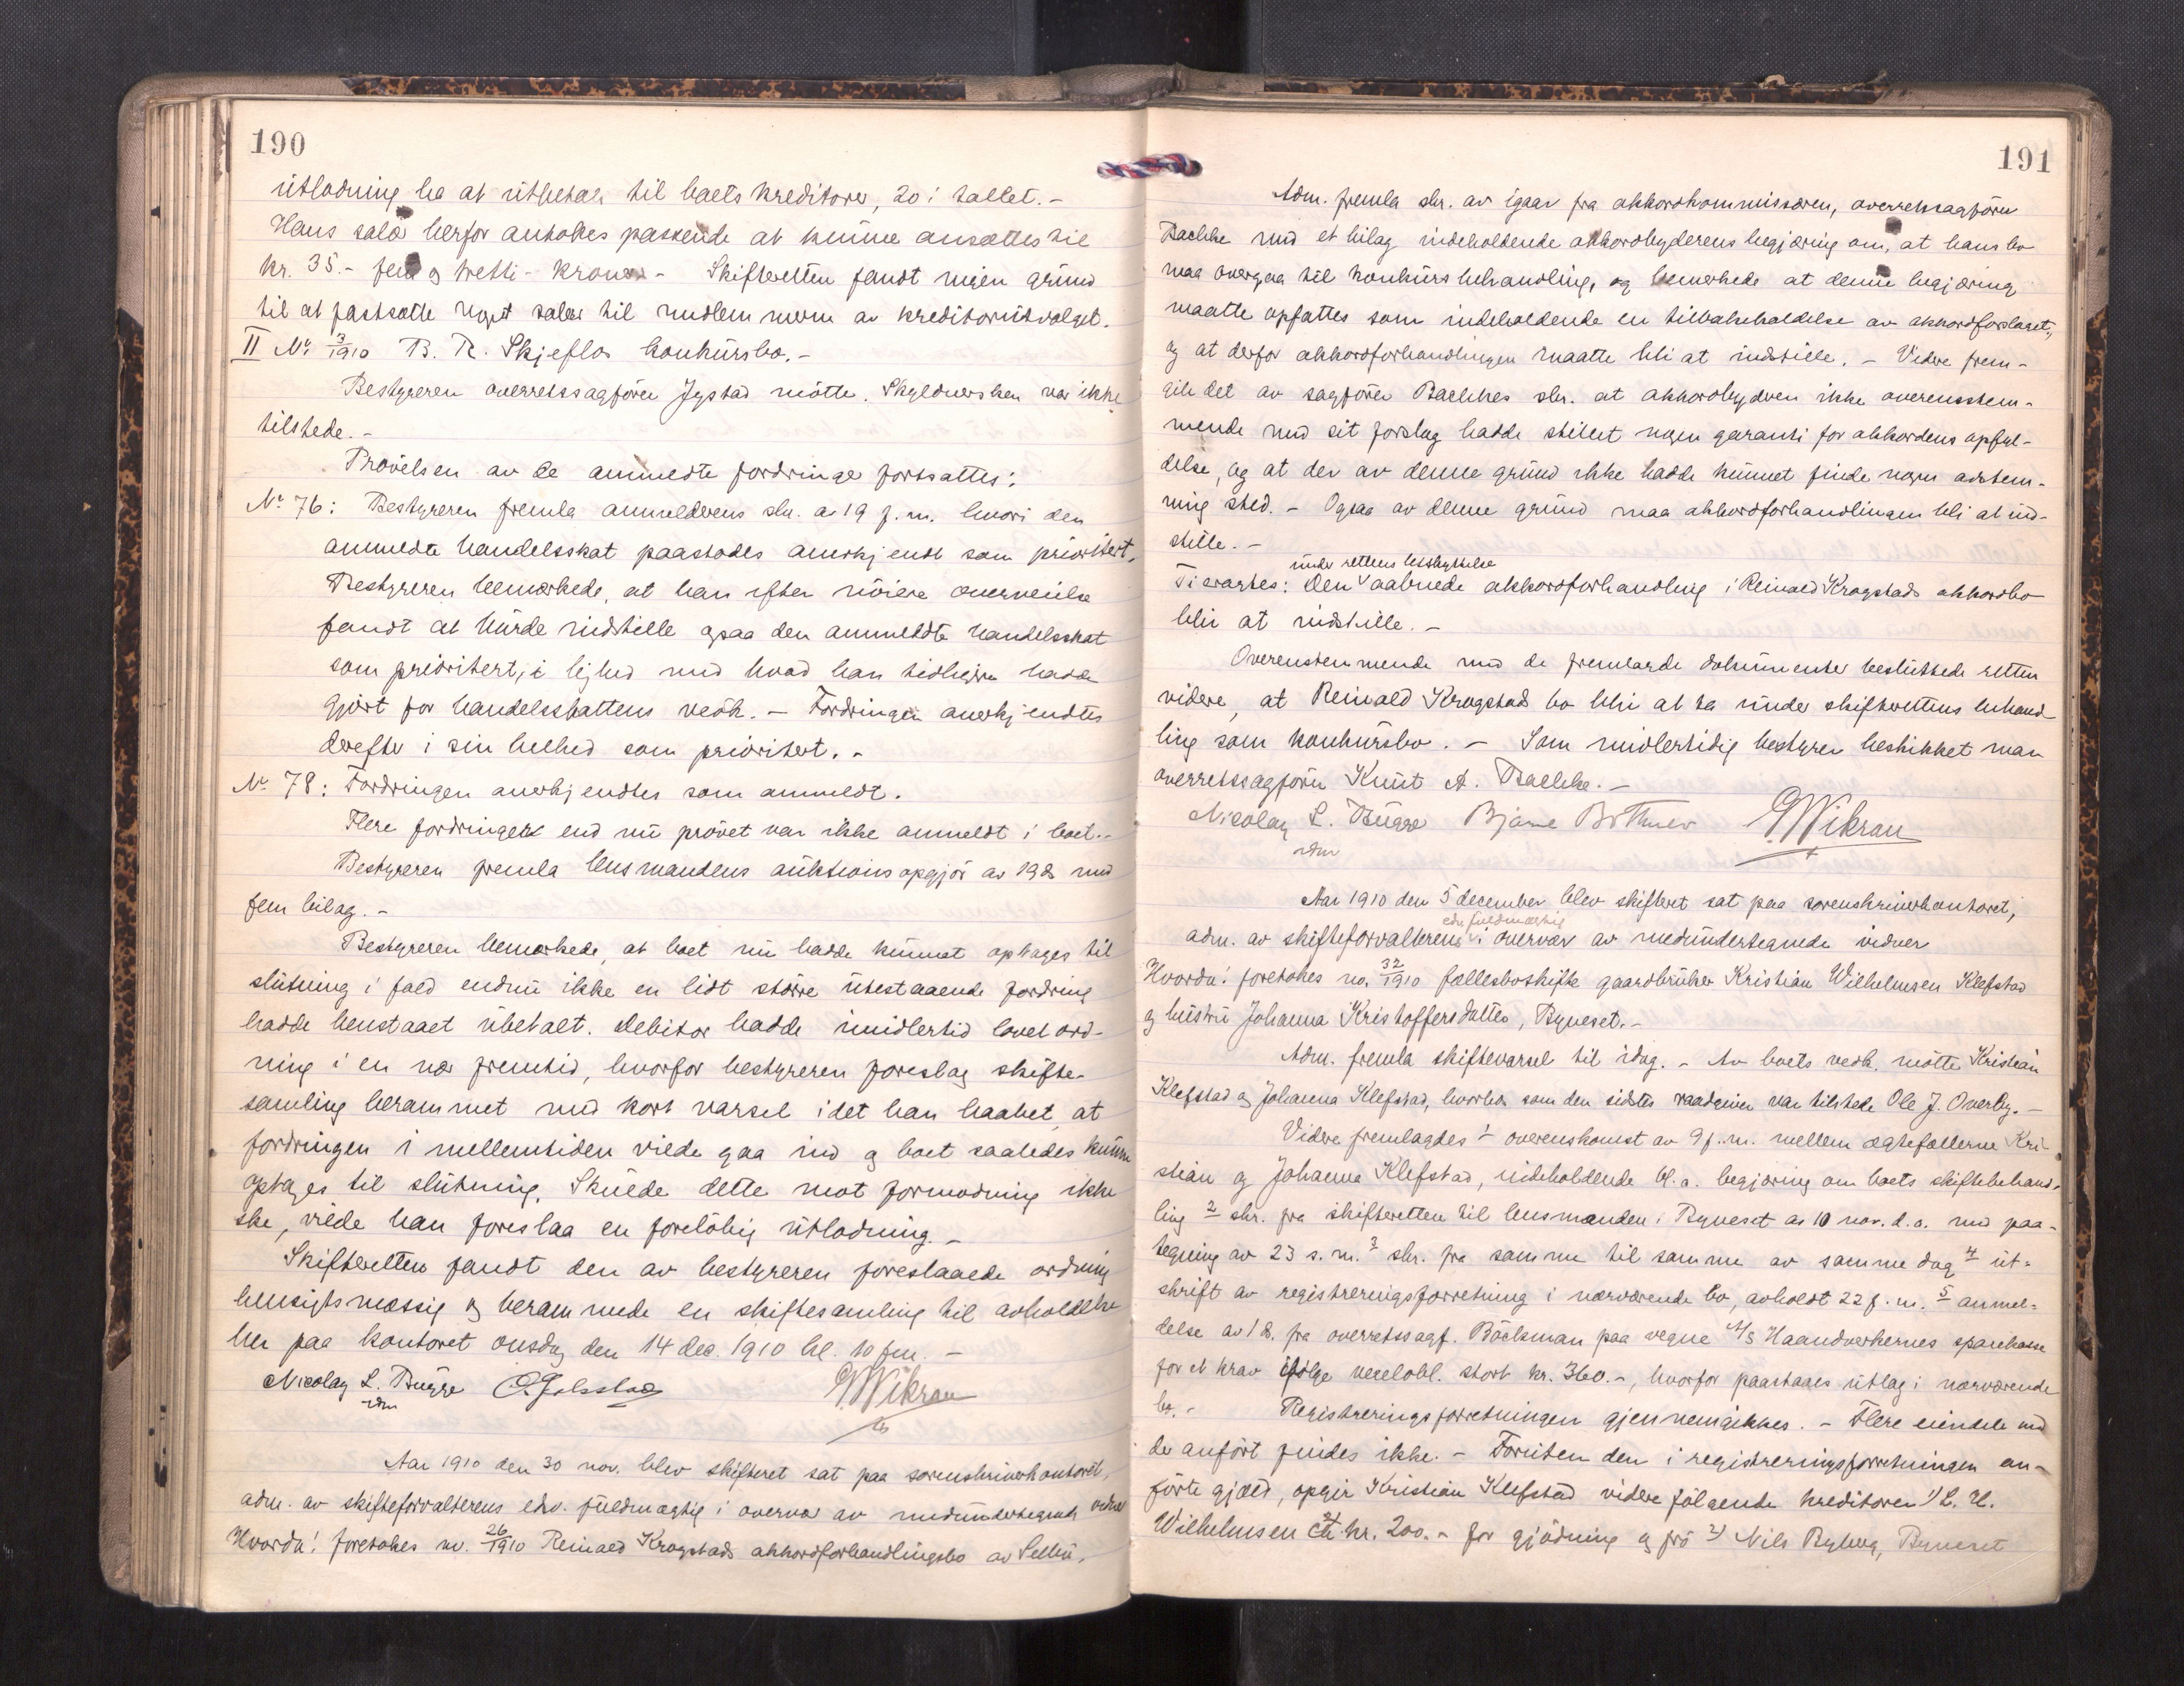 190
utlodning ha at utbetale til boets kreditorer, 20 i tallet. -
Hans salær herfor antokes passende at kunne ansættes til
kr. 35.- fem og tretti - kroner - Skifteretten fandt ingen grund
til at fastsætte noget salær til medlemmerne av kreditorutvalget.
II No. 3/1910 B. R. Skjeflos konkursbo. -
Bestyreren overretssagfører Jystad møtte. Skyldnersken var ikke
tilstede. -
Prøvelsen av de anmeldte fordringer fortsattes:
No 76: Bestyreren fremla anmelderens skr. av 19 f. m. hvori den
anmeldte handelsskat paastodes anerkjendt som prioritert.
Bestyreren bemerkede, at han efter nøiere overveielse
fandt at burde indstille ogsaa den anmeldte handelsskat
som prioritert, i lighed med hvad han tidligere hadde
gjort for handelsskattens vedk. - Fordringen anerkjendtes
derefter i sin helhed som prioritert. -
No 78: Fordringen anerkjendtes som anmeldt.
Flere fordringer end nu prøvet var ikke anmeldt i boet. -
Bestyreren fremla lensmandens auktionsopgjør av 19 ds med
fem bilag. -
Bestyreren bemerkede, at boet nu hadde kunnet optages til
slutning i fald endnu ikke en lidt større utestaaende fordring
hadde henstaaet ubetalt. Debitor hadde imidlertid lovet ord-
ning i en nær fremtid, hvorfor bestyreren foreslog skifte-
samling berammet med kort varsel idet han haabet, at
fordringen i mellemtiden vilde gaa ind og boet saaledes kunne
optages til slutning. Skulde dette mot formodning ikke
ske, vilde han foreslaa en foreløbig utlodning. -
Skifteretten fandt den av bestyreren foreslaaede ordning
hensigtsmæssig og berammede en skiftesamling til avholdelse
her paa kontoret onsdag den 14 dec. 1910 kl. 10 fm. -
Nicolay L. Bugge
GWikran
Aar 1910 den 30 nov. blev skifteret sat paa sorenskriverkontoret,
adm. av skifteforvalterens edv. fuldmægtig i overvær av medundertegnede vidner
Hvorda! foretokes no. 26/1910 Reinald Krogstads akkordforhandlingsbo av Selbu.
191
Adm. fremla skr. av igaar fra akkordkommissæren, overretssagfører
Bachke med et bilag indeholdende akkordbyderens begjæring om, at hans bo
maa overgaa til konkursbehandling, og bemerkede at denne begjæring
maatte opfattes som indeholdende en tilbakeholdelse av akkordforslaget,
og at derfor akkordforhandlingen maatte bli at indstille. - Videre frem-
gik det av sagfører Bachkes skr. at akkordbyderen ikke overensstem-
mende med sit forslag hadde stillet nogen garanti for akkordens opfyl-
delse, og at der av denne grund ikke hadde kunnet finde nogen avstem-
ning sted. - Ogsaa av denne grund maa akkordforhandlingen bli at ind-
stille. -
under rettens beskyttelse
Ti eragtes: Den aabnede akkordforhandling i Reinald Krogstads akkordbo
blir at indstille. -
Overensstemmende med de fremlagde dokumenter besluttede retten
videre, at Reinald Krogstads bo blir at ta under skifterettens behand-
ling som konkursbo. - Som midlertidig bestyrer beskikket man
overretssagfører Knut A. Bachke. -
Nicolay L. Bugge Bjarne Bothner GWikran
Aar 1910 den 5 december blev skifteret sat paa sorenskriverkontoret,
edv. fuldmægtig
adm. av skifteforvalterens i overvær av medundertegnede vidner
Hvorda! foretokes no. 32/1910 fællesboskifte gaardbruker Kristian Wilhelmsen Klefstad
og hustru Johanna Kristoffersdatter, Bynesset. -
Adm. fremla skiftevarsel til idag. - Av boets vedk. møtte Kristian
Klefstad og Johanna Klefstad, hvorhos som den sidstes raadgiver var tilstede Ole J. Overby. -
Videre fremlagdes 1 overenskomst av 9 f. m. mellem egtefællerne Kri-
stian og Johanna Klefstad, indeholdende bl. a. begjæring om boets skiftebehand-
ling 2 skr. fra skifteretten til lensmanden i Byneset av 10 nov. d. a. med paa-
tegning av 23 s. m. 3 skr. fra samme til samme av samme dag 4 ut-
skrift av registreringsforretning i nærværende bo, avholdt 22 f. m. 5 anmel-
delse av 1 ds. fra overretssagf. Böckman paa vegne A/S Haandverkernes sparekasse
for et krav ifølge vexelobl. stort kr. 360.-, hvorfor paastaaes utlæg i nærværende
bo. - Registreringsforretningen gjennemgikkes. - Flere eiendele end
der anført findes ikke. - Foruten den i registreringsforretningen an-
førte gjæld, opgir Kristian Klefstad videre følgende kreditorer 1) L. H.
Wilhelmsen kr. 200.- for gjødning og frø 2) Nils Ryberg, Byneset